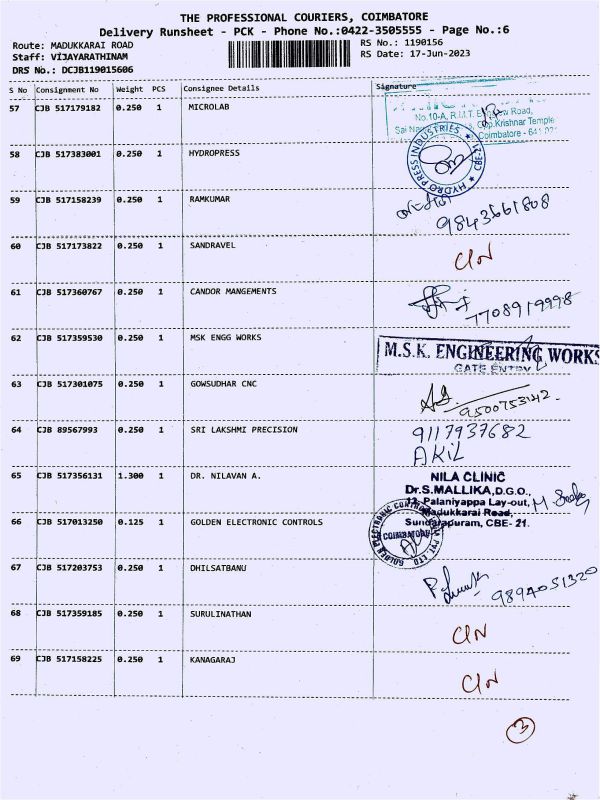 THE PROFESSIONAL COURIERS, COIMBATORE
Delivery Runsheet - PCK - Phone No.:0422-3505555 - Page No.:6
Route: MADUKKARAI ROAD
RS No.: 1190156
Staff: VIJAYARATHINAM
RS Date: 17-Jun-2023
DRS No.: DCJB119015606
S No Consignment No Weight PCS Consignee Details Signature
57 CJB 517179182 0.250 1 MICROLAB
No.10-A, R.M.T. Road,
Opp.Krishnar Temple
Coimbatore - 641
58 CJB 517383001 0.250 1 HYDROPRESS
HYDRO PRESS INDUSTRIES ★ CBE-21 ★
59 CJB 517158239 0.250 1 RAMKUMAR
9843661808
60 CJB 517173822 0.250 1 SANDRAVEL
C/N
61 CJB 517360767 0.250 1 CANDOR MANGEMENTS
7708919998
62 CJB 517359530 0.250 1 MSK ENGG WORKS
M.S.K. ENGINEERING WORKS
GATE ENTRY
63 CJB 517301075 0.250 1 GOWSUDHAR CNC
64 CJB 89567993 0.250 1 SRI LAKSHMI PRECISION
9117937682
AKIL
65 CJB 517356131 1.300 1 DR. NILAVAN A.
NILA CLINIC
Dr.S.MALLIKA,D.G.O.,
Palaniyappa Lay-out,
Madukkarai Road,
Sundarapuram, CBE- 21.
66 CJB 517013250 0.125 1 GOLDEN ELECTRONIC CONTROLS
GOLDEN ELECTRONIC CONTROLS PVT. LTD
COIMBATORE
67 CJB 517203753 0.250 1 DHILSATBANU
9894051320
68 CJB 517359185 0.250 1 SURULINATHAN
C/N
69 CJB 517158225 0.250 1 KANAGARAJ
C/N
3